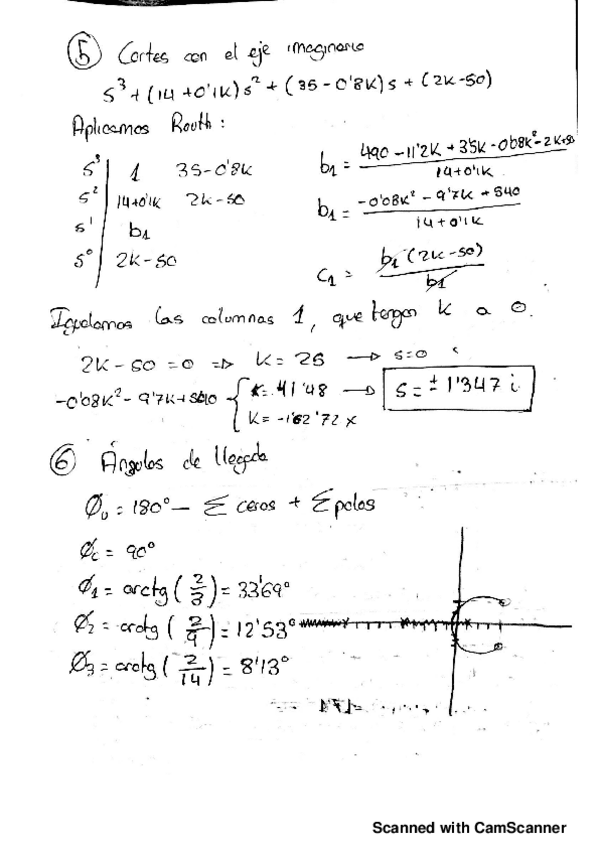 ⑤ Cortes con el eje imaginario
s³ + (14 + 0'1K)s² + (35 - 0'8K)s + (2K - 50)
Aplicamos Routh:
s³ | 1 35-0'8K
s² | 14+0'1K 2K-50
s¹ | b₁
s⁰ | 2K-50
b₁ = (490 - 11'2K + 3'5K - 0'08K² - 2K + 50) / (14+0'1K)
b₁ = (-0'08K² - 9'7K + 540) / (14+0'1K)
c₁ = b₁(2K-50) / b₁
Igualamos las columnas 1, que tengan K a 0.
2K - 50 = 0 => K = 25 → s=0
-0'08K² - 9'7K + 540 { K = 41'48 → s = ± 1'347 i
K = -162'72 x
⑥ Ángulos de llegada
Ø₀ = 180° - Σ ceros + Σ polos
Øc = 90°
Ø₁ = arctg(2/3) = 33'69°
Ø₂ = arctg(2/9) = 12'53°
Ø₃ = arctg(2/14) = 8'13°
Scanned with CamScanner